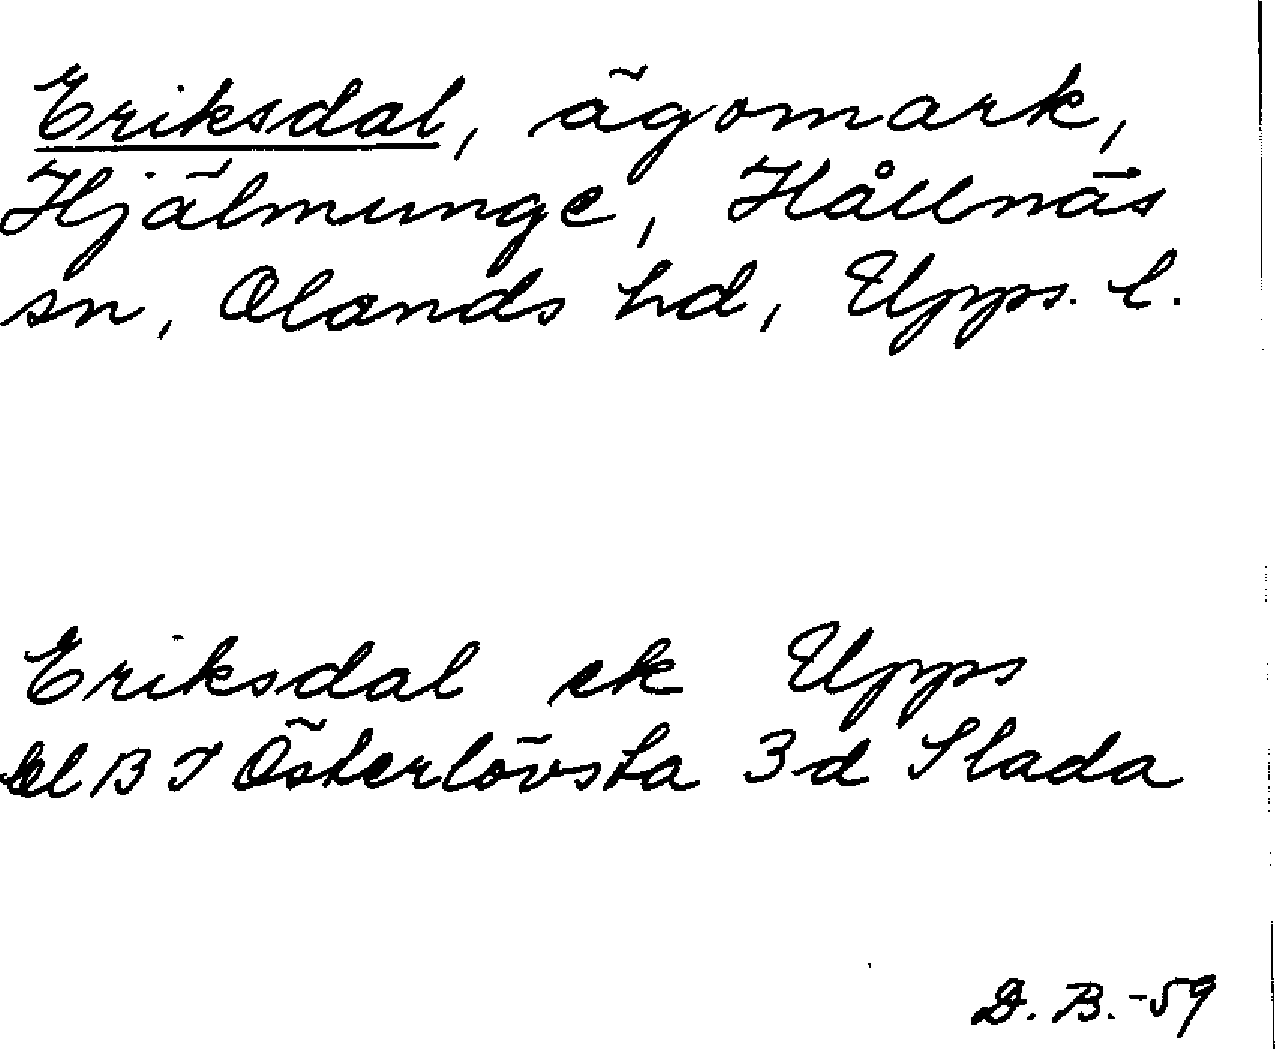 Eriksdal, ägomark,
Hjälmunge, Hållnäs
sn, Olands hd, Upps. l.
Eriksdal ek Upps
bl B I Österlövsta 3d Slada
D. B. -59